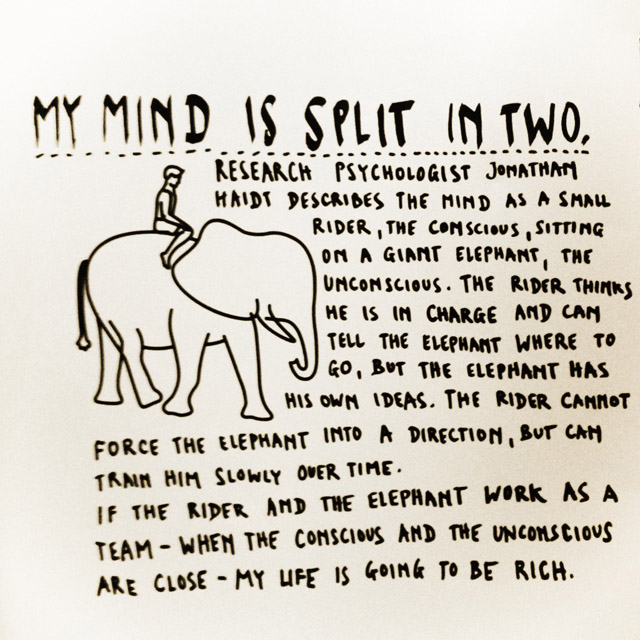 MY MIND IS SPLIT IN TWO.
RESEARCH PSYCHOLOGIST JONATHAN
HAIDT DESCRIBES THE MIND AS A SMALL
RIDER, THE CONSCIOUS, SITTING
ON A GIANT ELEPHANT, THE
UNCONSCIOUS. THE RIDER THINKS
HE IS IN CHARGE AND CAN
TELL THE ELEPHANT WHERE TO
GO, BUT THE ELEPHANT HAS
HIS OWN IDEAS. THE RIDER CANNOT
FORCE THE ELEPHANT INTO A DIRECTION, BUT CAN
TRAIN HIM SLOWLY OVER TIME.
IF THE RIDER AND THE ELEPHANT WORK AS A
TEAM - WHEN THE CONSCIOUS AND THE UNCONSCIOUS
ARE CLOSE - MY LIFE IS GOING TO BE RICH.